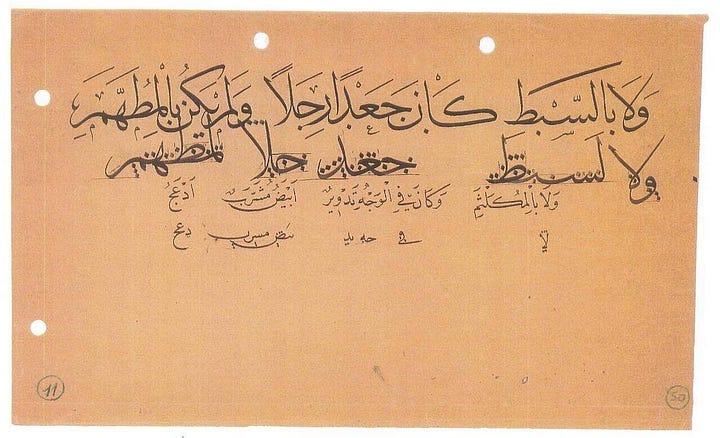 وَلَا بِالسَّبْطِ كَانَ جَعْدًا رَجِلًا وَلَمْ يَكُنْ بِالْمُطَهَّمِ
ولا لسبط جعد جلا لمطهم
وَلَا بِالْمُكَلْثَمِ وَكَانَ فِي الْوَجْهِ تَدْوِيرٌ أَبْيَضُ مُشْرَبٌ أَدْعَجُ
في
11
50